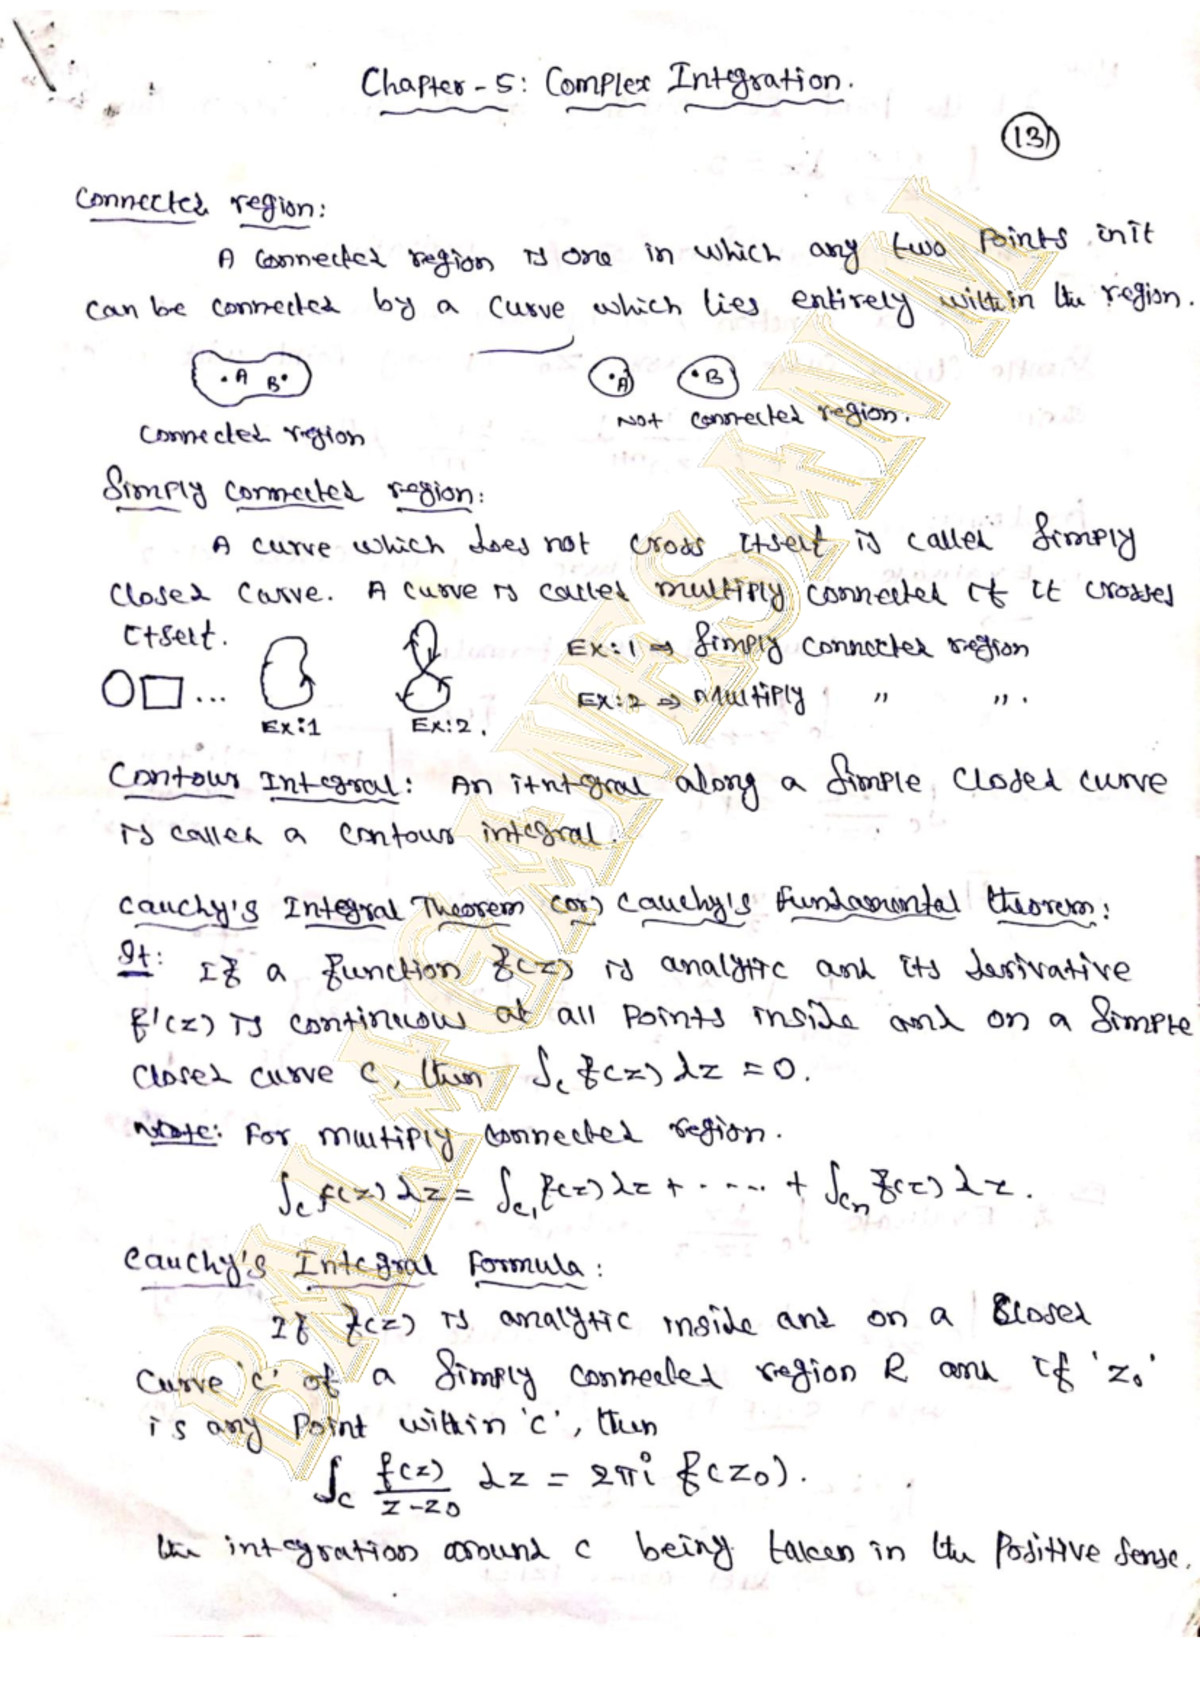 Chapter-5: Complex Integration.
13
Connected region:
A connected region is one in which any two points in it
can be connected by a curve which lies entirely within the region.
A B
A B
Connected region
Not connected region.
Simply connected region:
A curve which does not cross itself is called simply
closed curve. A curve is called multiply connected if it crosses
itself.
Ex:1 ⇒ Simply connected region
... Ex:1 Ex:2.
Ex:2 ⇒ Multiply " ".
Contour Integral: An itntgral along a simple closed curve
is called a contour integral.
Cauchy's Integral Theorem (or) Cauchy's fundamental theorem:
St: If a function f(z) is analytic and its derivative
f'(z) is continuous at all points inside and on a simple
closed curve c, then ∫c f(z) dz = 0.
Note: For multiply connected region.
∫c f(z) dz = ∫c1 f(z) dz + ..... + ∫cn f(z) dz.
Cauchy's Integral Formula:
If f(z) is analytic inside and on a closed
curve 'c' of a simply connected region R and if 'z0'
is any point within 'c', then
∫c f(z)/(z-z0) dz = 2πi f(z0).
the integration around c being taken in the positive sense.
BALAGANESAN M